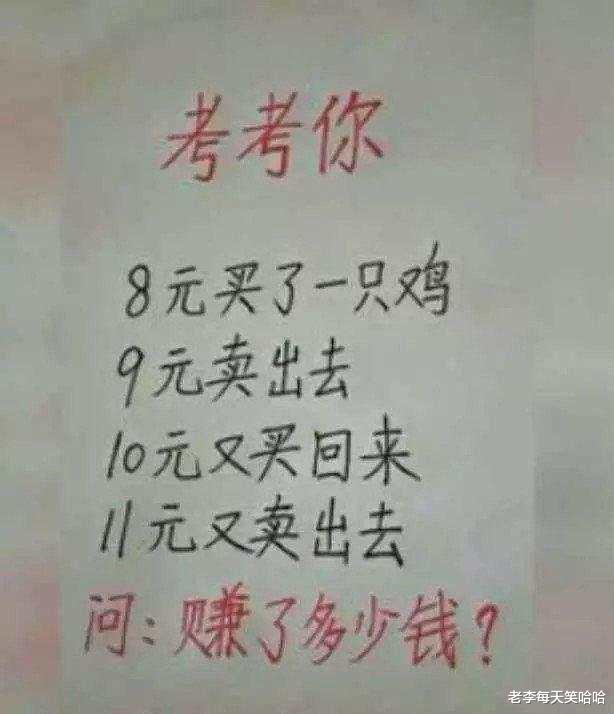 考考你
8元买了一只鸡
9元卖出去
10元又买回来
11元又卖出去
问:赚了多少钱?
老李每天笑哈哈